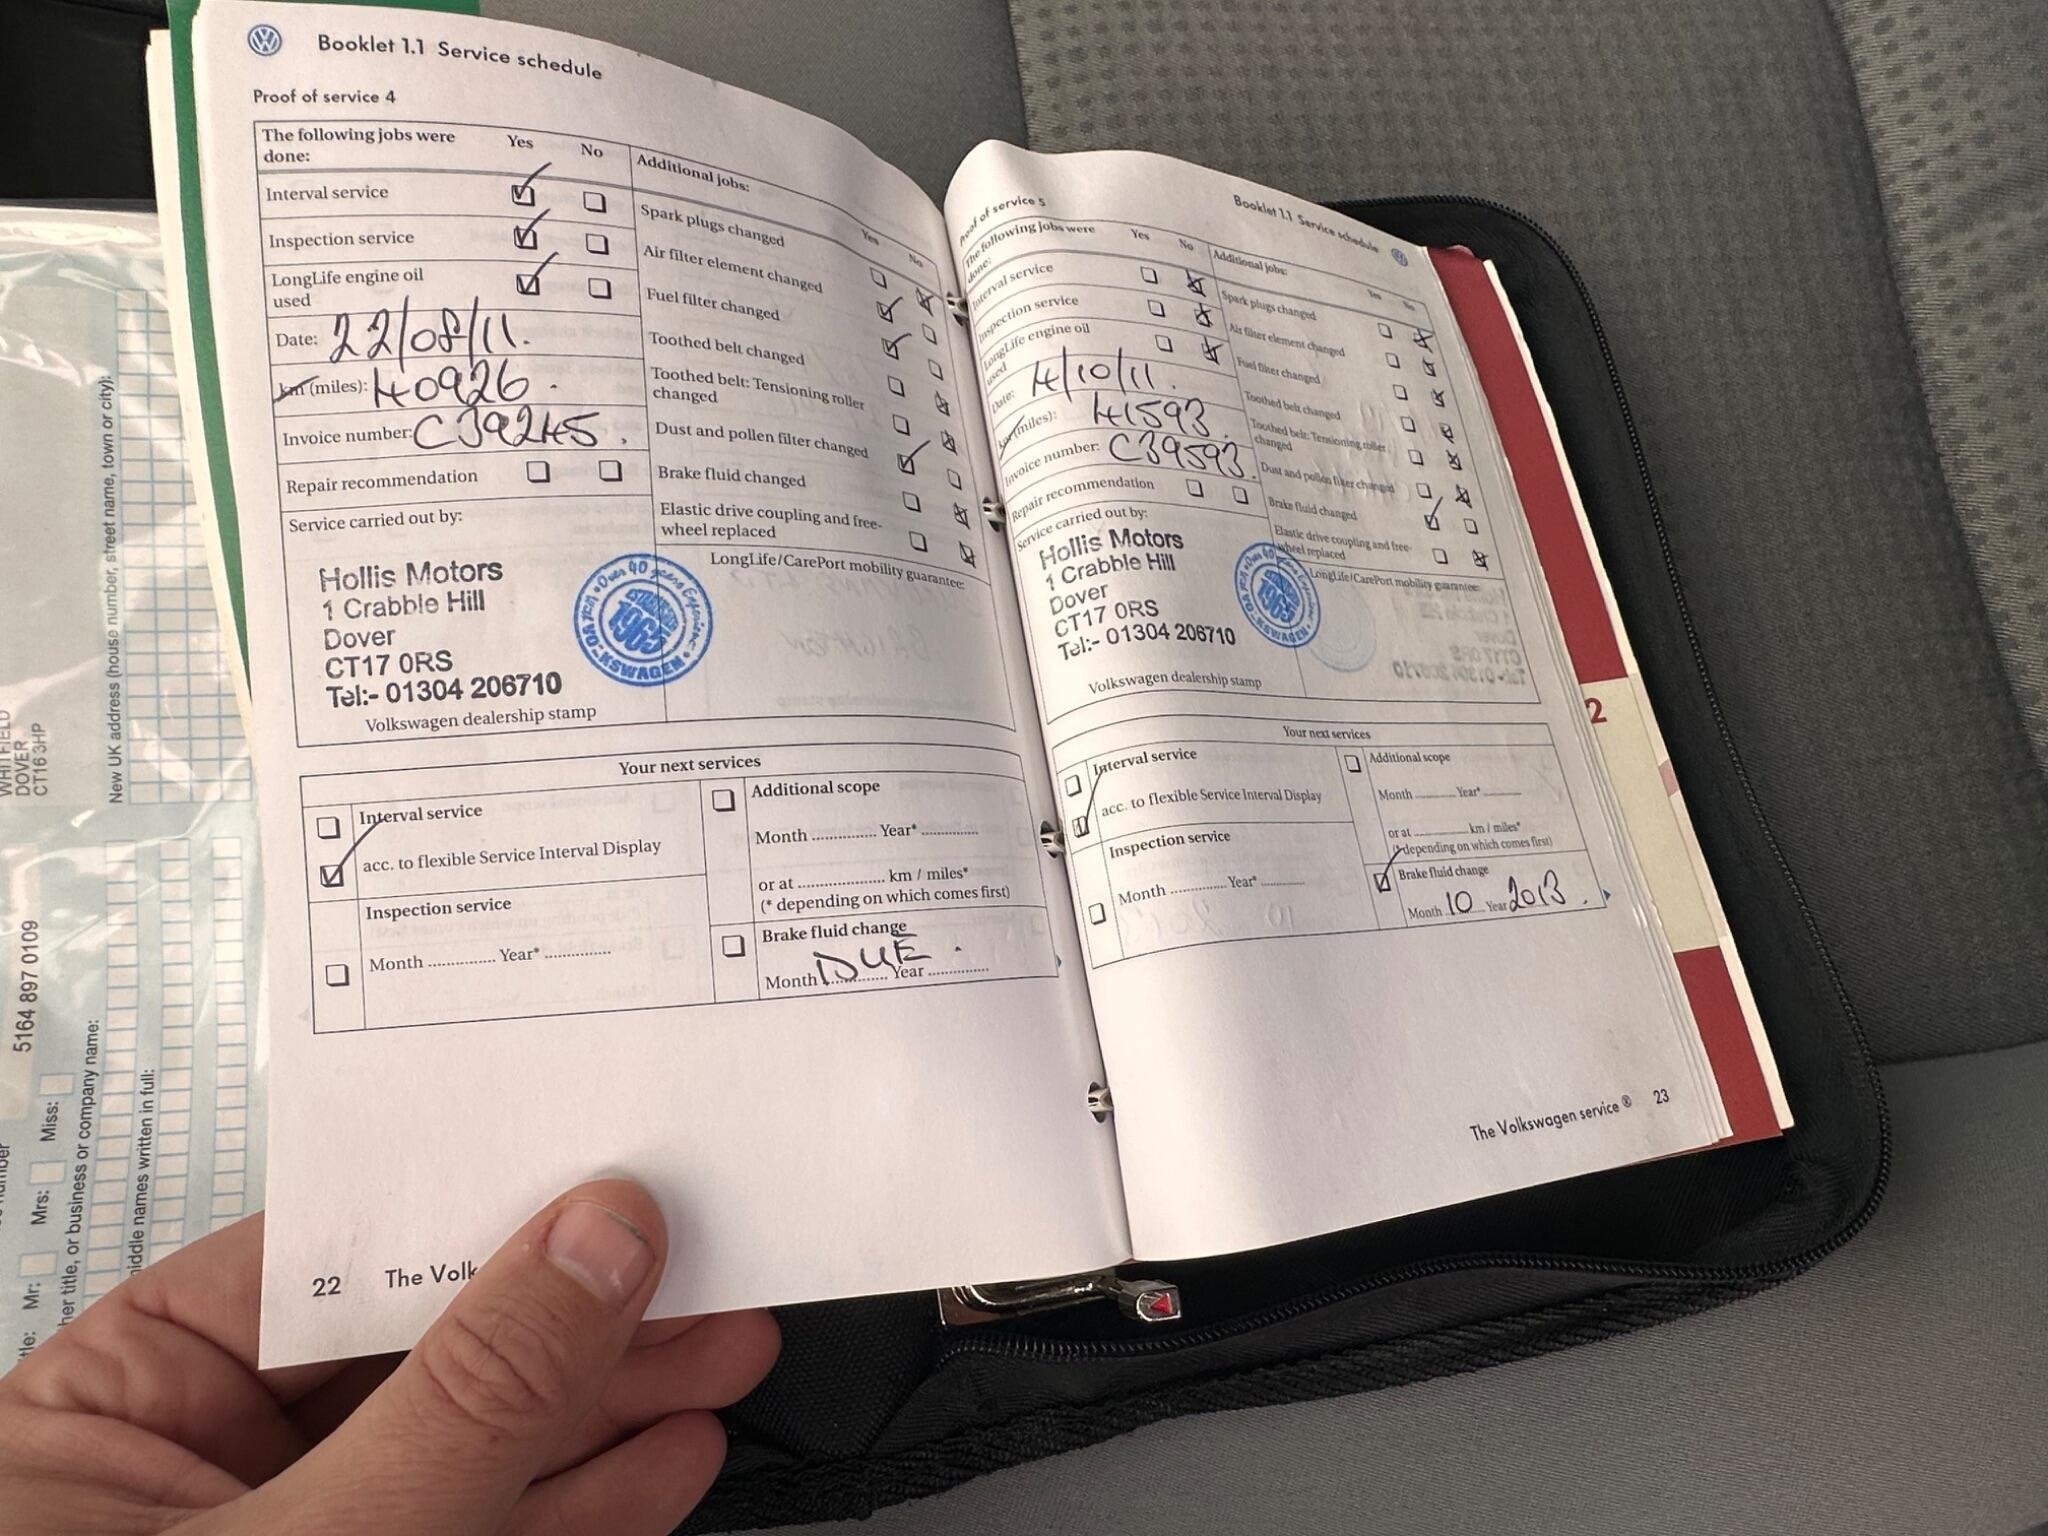 Booklet 1.1 Service schedule
Proof of service 4
The following jobs were done:
Yes
No
Interval service
Inspection service
LongLife engine oil used
Date: 22/08/11.
km (miles): 40926.
Invoice number: C39245.
Repair recommendation
Service carried out by:
Hollis Motors
1 Crabble Hill
Dover
CT17 0RS
Tel:- 01304 206710
Volkswagen dealership stamp
Additional jobs:
Yes
No
Spark plugs changed
Air filter element changed
Fuel filter changed
Toothed belt changed
Toothed belt: Tensioning roller
changed
Dust and pollen filter changed
Brake fluid changed
Elastic drive coupling and free-
wheel replaced
LongLife/CarePort mobility guarantee:
Over 40 years
1965
Your next services
Interval service
acc. to flexible Service Interval Display
Inspection service
Month .............. Year* ..............
Additional scope
Month .............. Year* ..............
or at .................... km / miles*
(* depending on which comes first)
Brake fluid change
Month DUE. Year ..............
22
The Volk
Proof of service 5
Booklet 1.1 Service schedule
The following jobs were
done:
Yes
No
Interval service
Inspection service
LongLife engine oil
used
Date: 4/10/11.
km (miles): 41593.
Invoice number: C39593.
Repair recommendation
Service carried out by:
Hollis Motors
1 Crabble Hill
Dover
CT17 0RS
Tel:- 01304 206710
Volkswagen dealership stamp
Additional jobs:
Yes
No
Spark plugs changed
Air filter element changed
Fuel filter changed
Toothed belt changed
Toothed belt: Tensioning roller
changed
Dust and pollen filter changed
Brake fluid changed
Elastic drive coupling and free-
wheel replaced
LongLife/CarePort mobility guarantee:
1965
Your next services
Interval service
acc. to flexible Service Interval Display
Inspection service
Month .............. Year* ..............
Additional scope
Month .............. Year* ..............
or at .................... km / miles*
(* depending on which comes first)
Brake fluid change
Month 10 Year 2013.
The Volkswagen service® 23
2
DOVER
CT16 3HP
New UK address (house number, street name, town or city):
5164 897 0109
Mr:
Mrs:
Miss:
her title, or business or company name:
middle names written in full: